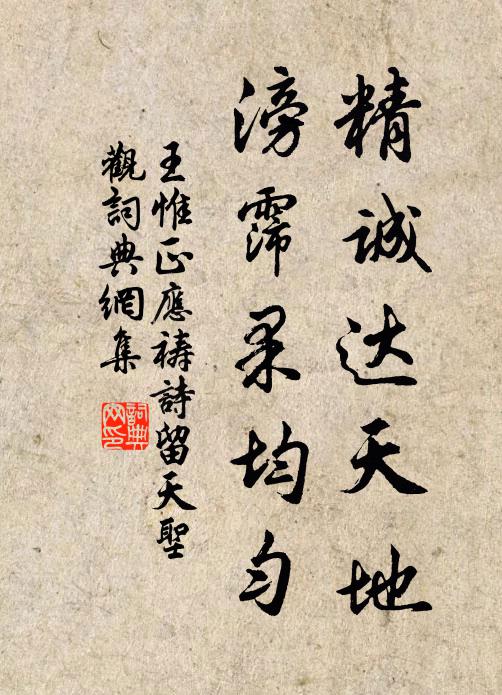 精诚达天地
滂霈果均匀
王惟正應禱詩留天聖
觀詞典網集
詞典網印